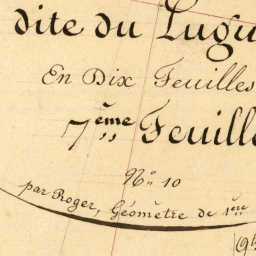 dite du Lugu
En Dix Feuilles
7ème Feuille
No 10
par Roger, Géomètre de 1ère